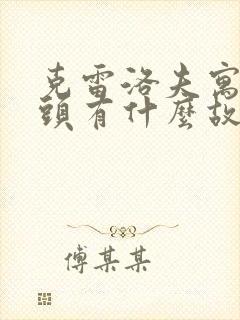 克雷洛夫寓
頭有什麼故
傅某某